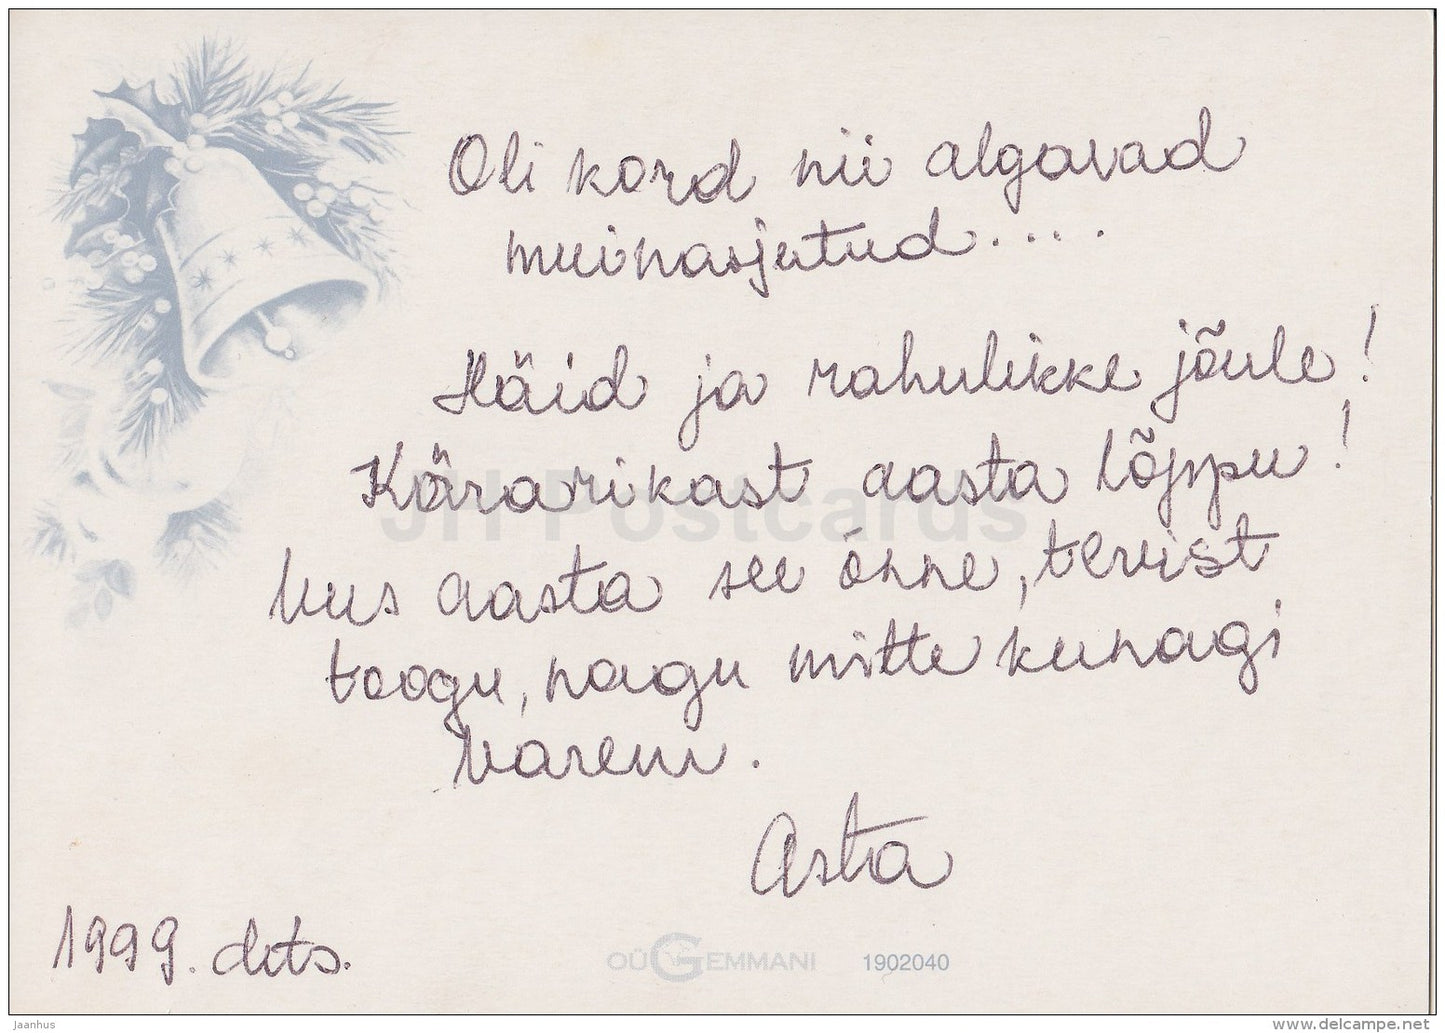 Oli kord nii algavad
muinasjutud....
Häid ja rahulikke jõule!
Kärarikast aasta lõppu!
Uus aasta see õnne, tervist
toogu, nagu mitte kunagi
varem.
Asta
1999. dets.
OÜGEMMANI 1902040
JH Postcards
jaanhus
www.delcampe.net